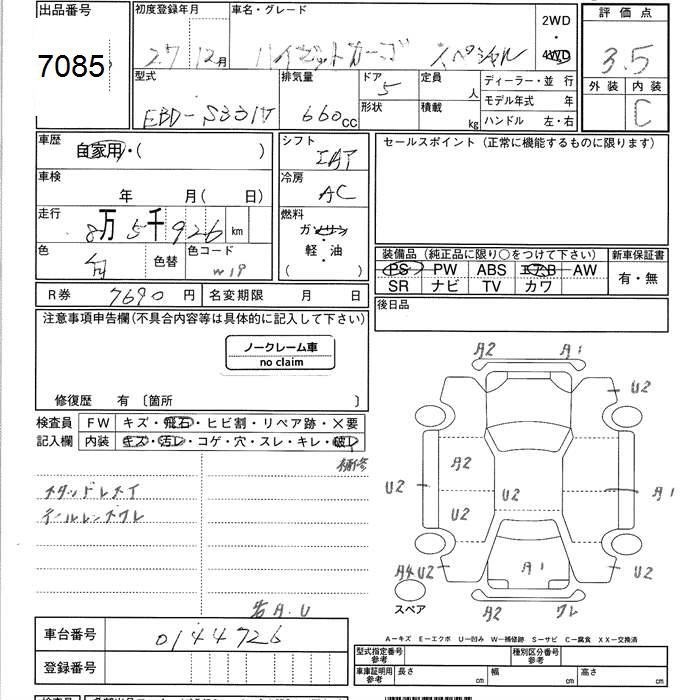 出品番号
初度登録年月
車名・グレード
2WD
・
4WD
評価点
7085
27
12月
ハイゼットカーゴ スペシャル
3.5
外装 内装
C
型式
EBD-S331V
排気量
660cc
ドア
5
形状
定員
人
積載
kg
ディーラー・並行
モデル年式 年
ハンドル 左・右
車歴
自家用・( )
シフト
IAT
セールスポイント (正常に機能するものに限ります)
車検
年 月( 日)
冷房
AC
走行
8万5千926km
燃料
ガソリン
軽・油
( )
色
色替
色コード
W19
装備品 (純正品に限り〇をつけて下さい)
新車保証書
PS PW ABS エアB AW
SR ナビ TV カワ
有・無
R券
7690円
名変期限 月 日
後日品
注意事項申告欄(不具合内容等は具体的に記入して下さい)
ノークレーム車
no claim
修復歴 有 〔箇所 〕
検査員
記入欄
FW キズ・飛石・ヒビ割・リペア跡・×要
内装 キズ・汚レ・コゲ・穴・スレ・キレ・破レ
補修
スタッドレスタイ
テールレンズワレ
若A.U
A2
A1
U2
A2
U2
U2
U2
A1
A4
U2
A1
U2
スペア
A2
ワレ
A−キズ E−エクボ U−凹み W−補修跡 S−サビ C−腐食 XX−交換済
車台番号
0144726
登録番号
型式指定番号
参考
種別区分番号
参考
車庫証明用
参考
長さ cm
幅 cm
高さ cm